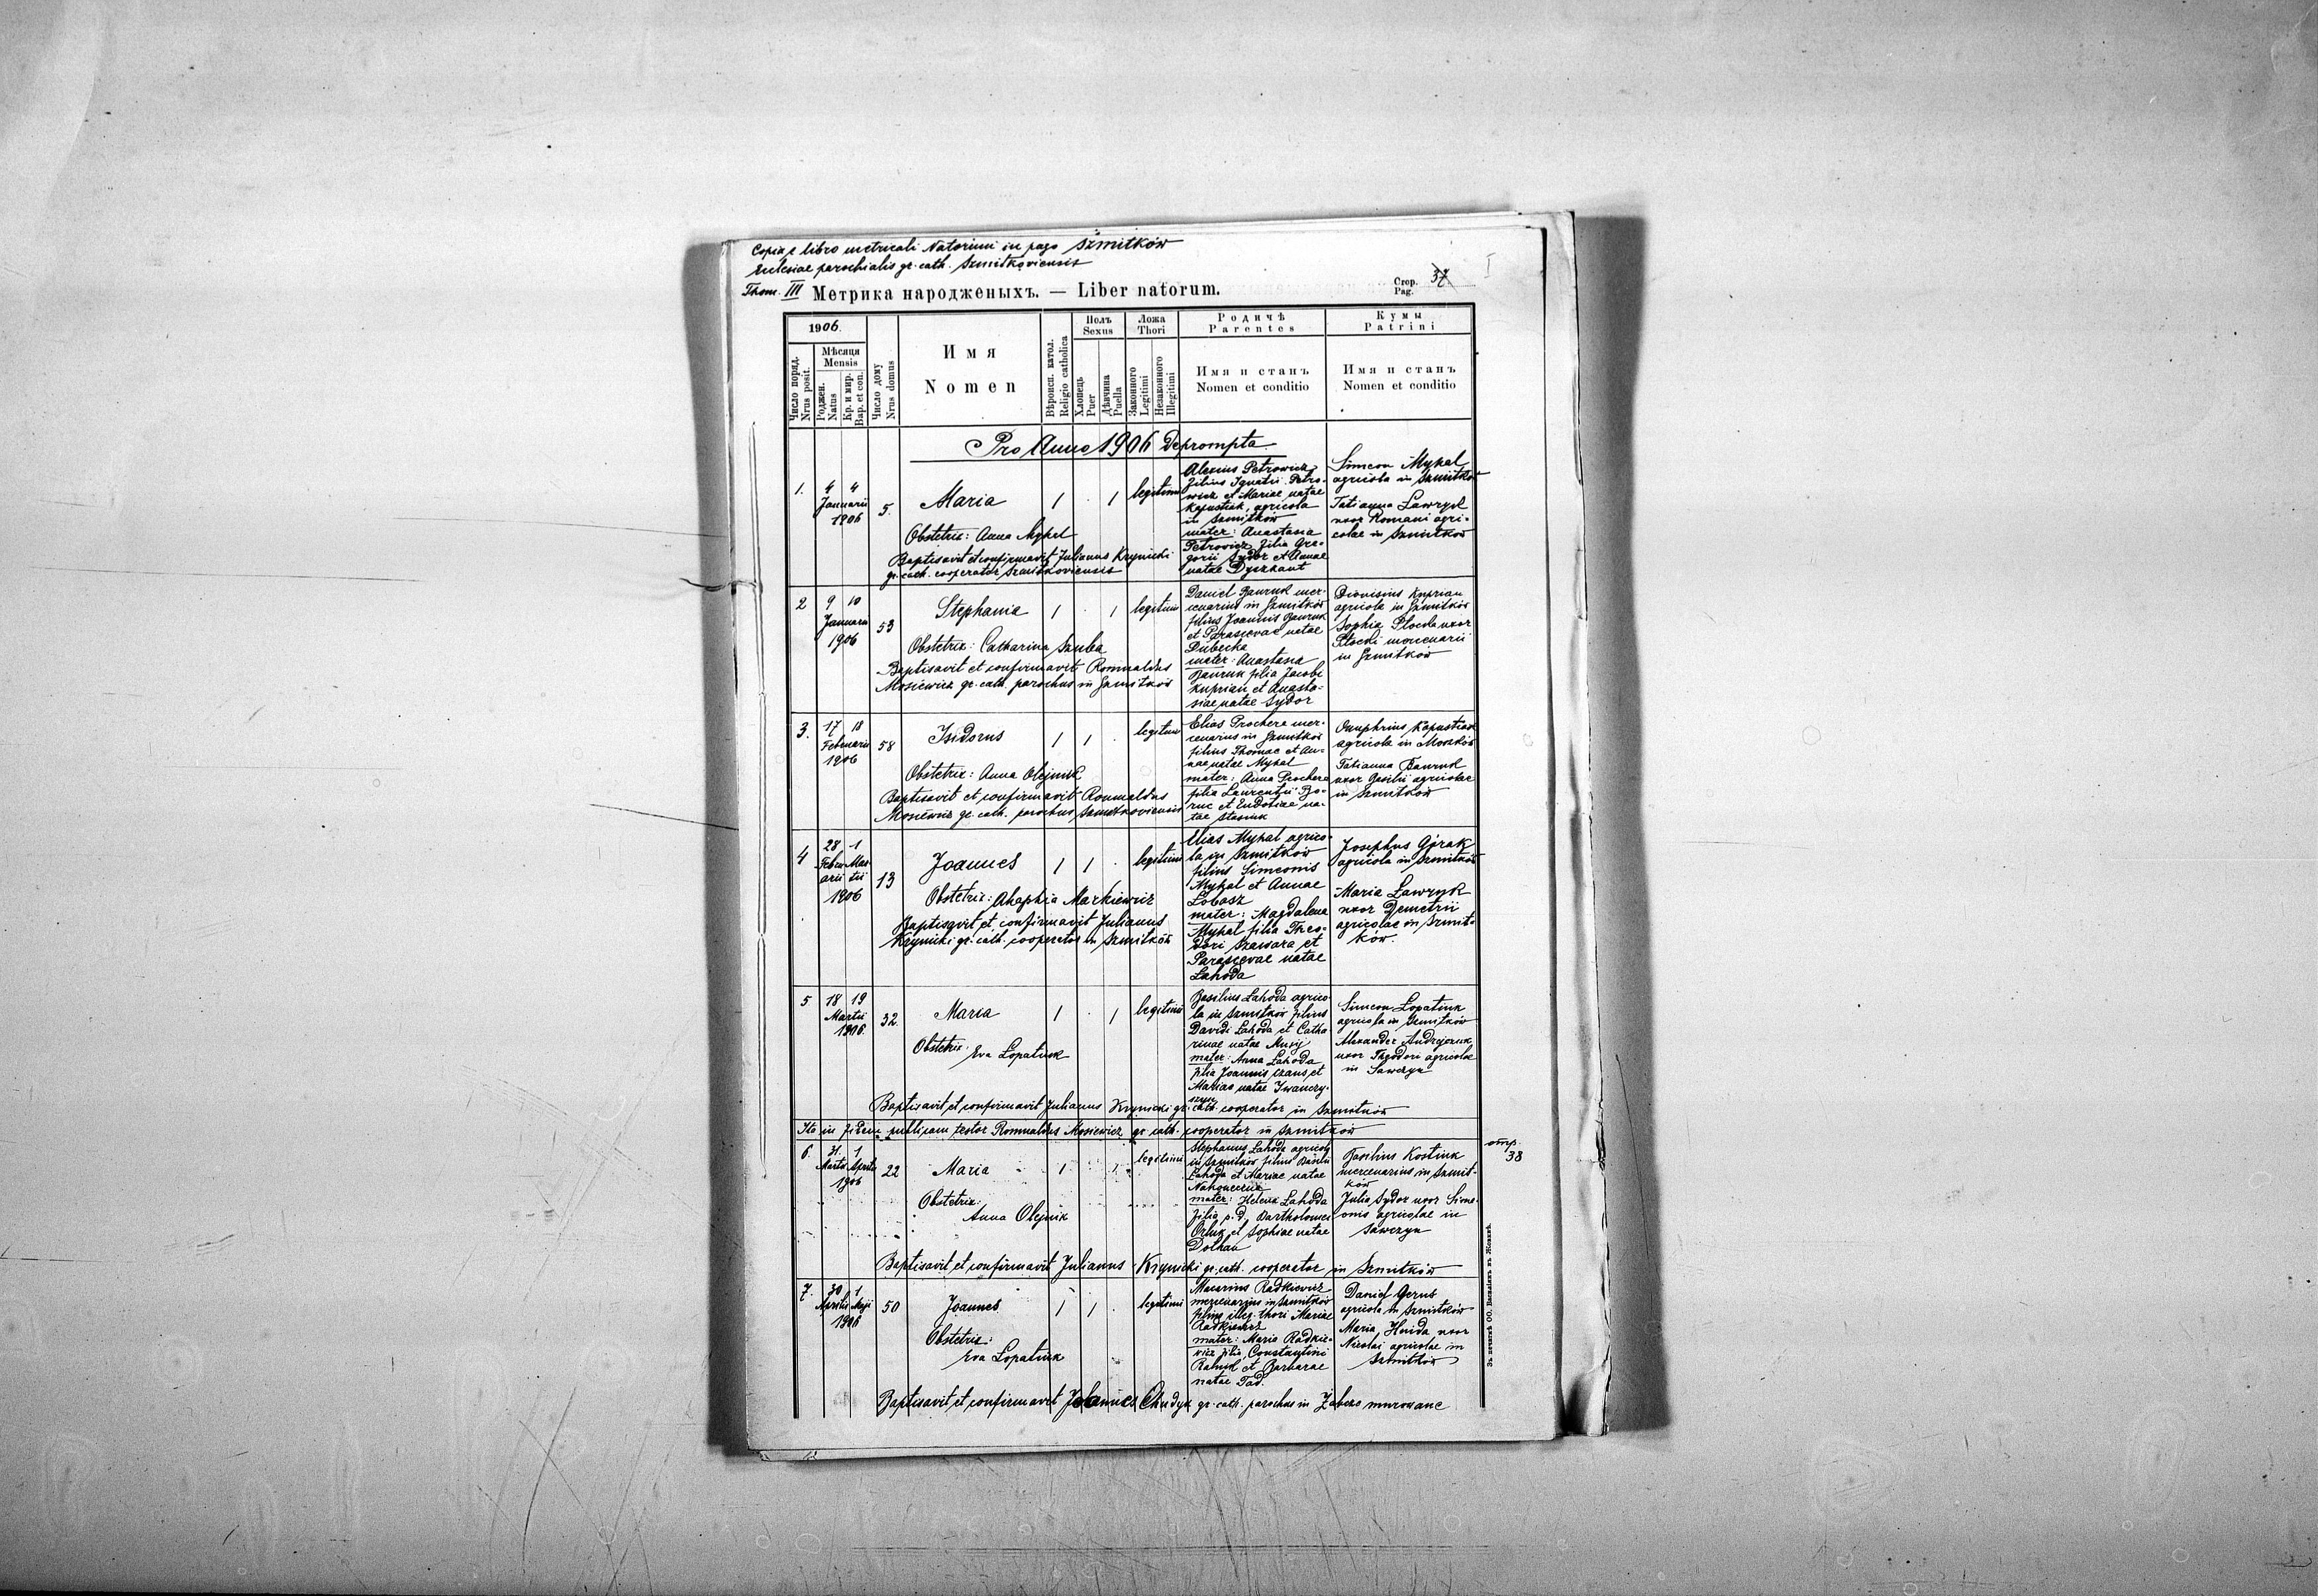 Copia e libro metricali Natorum in pago Szmitków
Ecclesiae parochialis gr. cath. Szmitkoviensis
Thom. III Метрика народженыхъ. — Liber natorum.
Стор. Pag. 37
I
1906.
Число поряд. Nrus posit.
Мѣсяця Mensis
Роджен. Natus
Кр. и мир. Bap. et con.
Число дому Nrus domus
Имя
Nomen
Вѣроисп. катол. Religio catholica
Полъ Sexus
Хлопець Puer
Дѣвчина Puella
Ложа Thori
Законного Legitimi
Незаконного Illegitimi
Родичѣ Parentes
Имя и станъ
Nomen et conditio
Кумы Patrini
Имя и станъ
Nomen et conditio
Pro Anno 1906 Deprompta
1. 4 4
Januarii
1906
5.
Maria
1 . 1 legitimi
Obstetrix: Anna Mykal
Baptisavit et confirmavit Julianus Krynicki
gr. cath. cooperator Szmitkoviensis
Alexius Petrowicz
filius Ignatii Petro-
wicz et Mariae natae
Kapustiak, agricola
in Szmitków
mater: Anastasia
Petrowicz filia Gre-
gorii Sydor et Annae
natae Dyszkant
Simeon Mykal
agricola in Szmitków
Tatianna Lawryk
uxor Romani agri-
colae in Szmitków
2 9 10
Januarii
1906
53
Stephania
1 . 1 legitimi
Obstetrix: Catharina Szuba
Baptisavit et confirmavit Romualdus
Mosiewicz gr. cath. parochus in Szmitków
Daniel Bauruk mer-
cenarius in Szmitków
filius Joannis Bauruk
et Parascevae natae
Dubecka
mater: Anastasia
Bauruk filia Jacobi
Kuprian et Anasta-
siae natae Sydor
Dionisius Kuprian
agricola in Szmitków
Sophia Ptocha uxor
mercenarii
in Szmitków
3. 17 18
Februarii
1906
58
Isidorus
1 1 . legitimi
Obstetrix: Anna Olejnik
Baptisavit et confirmavit Romualdus
Mosiewicz gr. cath. parochus Szmitkoviensis
Elias Prochera mer-
cenarius in Szmitków
filius Thomae et An-
nae natae Mykal
mater: Anna Prochera
filia Laurentii
et Eudoxiae na-
tae Stasiuk
Onuphrius Kapustiak
agricola in Moszków
Tatianna Bauruk
uxor Basilii agricolae
in Szmitków
4 28 1
Febru- Mar-
arii tii
1906
13
Joannes
1 1 . legitimi
Obstetrix: Ahaphia Markiewicz
Baptisavit et confirmavit Julianus
Krynicki gr. cath. cooperator in Szmitków
Elias Mykal agrico-
la in Szmitków
filius Simeonis
Mykal et Annae
Lobasz
mater: Magdalena
Mykal filia Theo-
dori Szawara et
Parascevae natae
Lahoda
Josephus Górak
agricola in Szmitków
Maria Lawryk
uxor Demetrii
agricolae in Szmit-
ków.
5 18 19
Martii
1906.
32.
Maria
1 . 1 legitimi
Obstetrix:
Eva Lopatiuk
Basilius Lahoda agrico-
la in Szmitków filius
Davidi Lahoda et Catha
rinae natae Musij
mater: Anna Lahoda
filia Joannis Czaus et
Mariae natae Iwanczy-
szyn
Simeon Lopatiuk
agricola in Szmitków
Alexander Andrejczuk
uxor Theodori agricolae
in Sawczyn
Baptisavit et confirmavit Julianus Krynicki gr. cath. cooperator in Szmitków
Ita in fidem publicam testor Romualdus Mosiewicz gr. cath. cooperator in Szmitków
6. 31. 1
Martii Aprilis
1906
22
Maria
1 . 1 legitimi
Obstetrix:
Anna Olejnik
Stephanus Lahoda agricola
in Szmitków filius Basilii
Lahoda et Mariae natae
mater: Helena Lahoda
filia p. d. Bartholomei
et Sophiae natae
Dolhan
Basilius Kostiuk
mercenarius in Szmit-
ków
Julia Sydor uxor Sime-
onis agricolae in
Sawczyn
отр. 38
Baptisavit et confirmavit Julianus Krynicki gr. cath. cooperator in Szmitków
7. 30 1
Aprilis Maji
1906
50
Joannes
1 1 . legitimi
Obstetrix:
Eva Lopatiuk
Macarius Radkiewicz
mercenarius in Szmitków
filius illeg. thori Mariae
Radkiewicz
mater: Maria Radkie-
wicz filia Constantini
Ratnik et Barbarae
natae Tad.
Daniel Gerus
agricola in Szmitków
Maria Hnida uxor
Nicolai agricolae in
Szmitków
Baptisavit et confirmavit Joannes Chudyk gr. cath. parochus in Zabcze murowane
Зъ печатнѣ ОО. Василіянъ въ Жовквѣ.